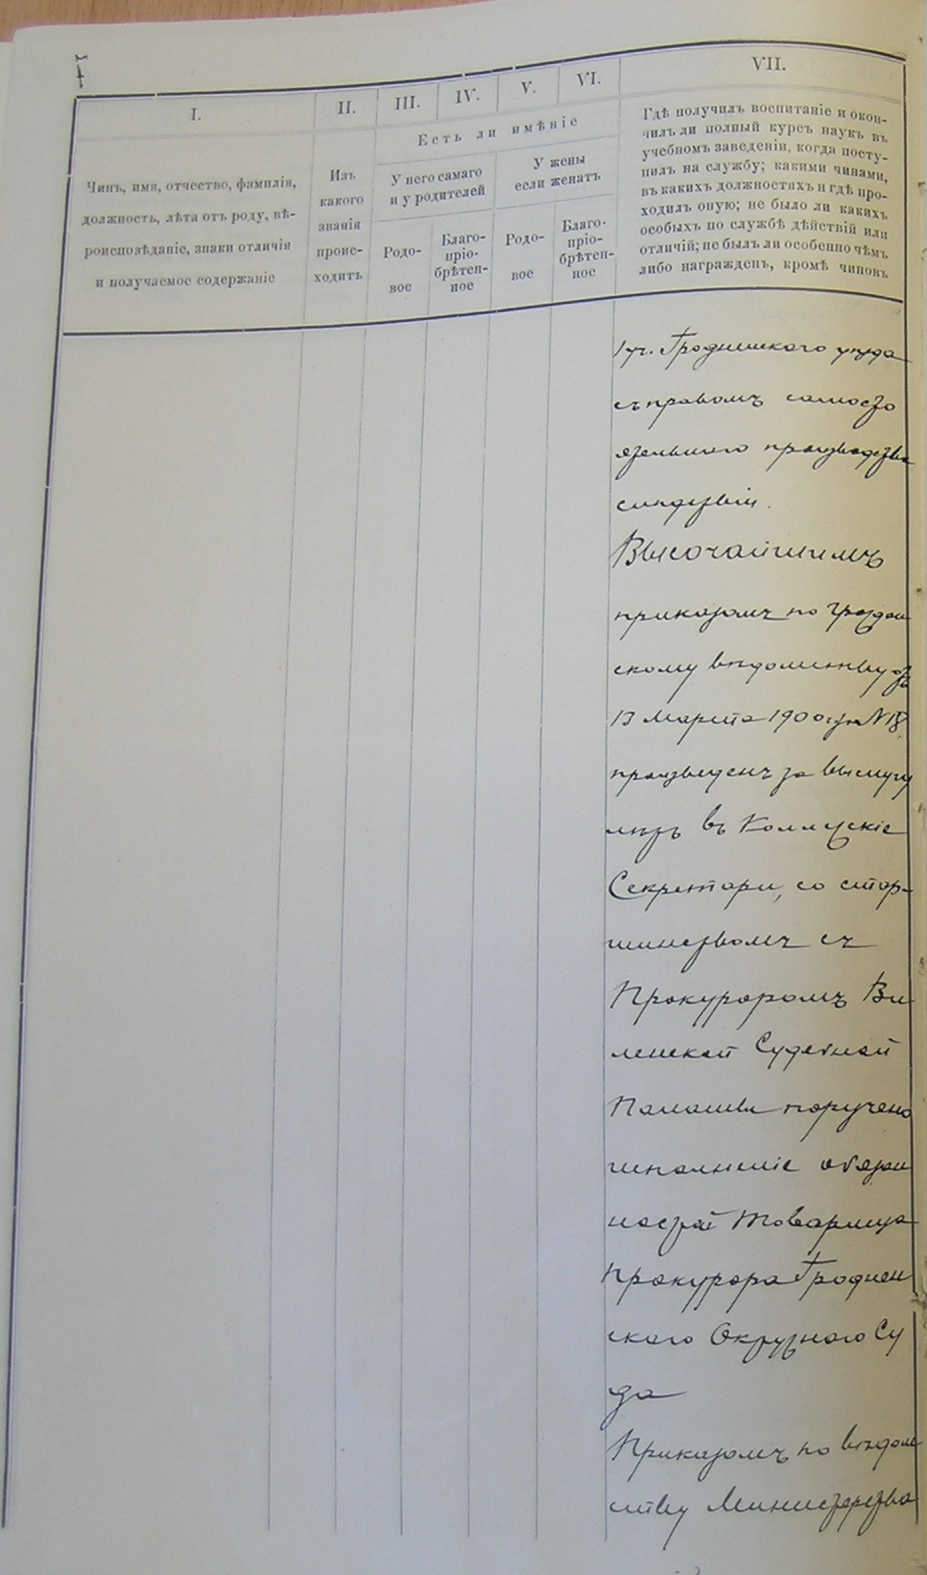 I.
II.
III.
IV.
V.
VI.
VII.
Чинъ, имя, отчество, фамилія,
должность, лѣта отъ роду, вѣ-
роисповѣданіе, знаки отличія
и получаемое содержаніе
Изъ
какого
званія
проис-
ходитъ
Есть ли имѣніе
У него самаго
и у родителей
У жены
если женатъ
Родо-
вое
Благо-
прiо-
брѣтен-
ное
Родо-
вое
Благо-
прiо-
брѣтен-
ное
Гдѣ получилъ воспитаніе и окон-
чилъ ли полный курсъ наукъ въ
учебномъ заведеніи, когда посту-
пилъ на службу; какими чинами,
въ какихъ должностяхъ и гдѣ про-
ходилъ оную; не было ли какихъ
особыхъ по службѣ дѣйствій или
отличій; не былъ ли особенно чѣмъ
либо награжденъ, кромѣ чиновъ
1 уч. Гродненскаго уѣзда
съ правомъ самосто
ятельнаго производства
слѣдствій.
Высочайшимъ
приказомъ по граждан
скому вѣдомству отъ
13 Марта 1900 г. за № 18
произведенъ за выслугу
лѣтъ въ Коллежскіе
Секретари, со стар-
шинствомъ съ
Прокуроромъ Ви
ленской Судебной
Палаты поручено
исполненіе обязан
ностей Товарища
Прокурора Гроднен
скаго Окружнаго Су
да
Приказомъ по вѣдом
ству Министерства